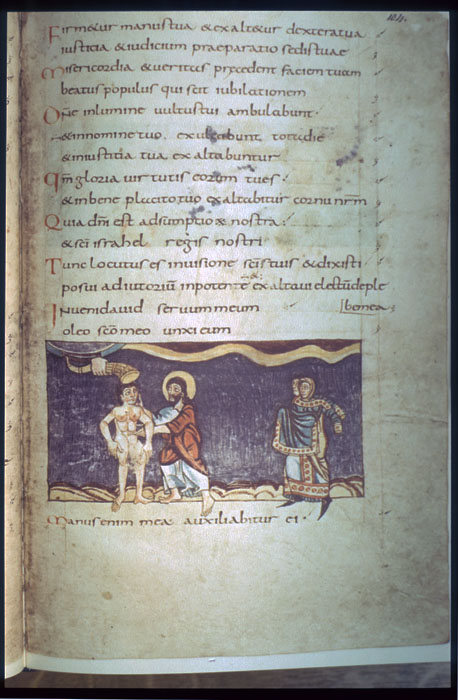 104.
Firmetur manus tua & exaltetur dextera tua
iusticia & iudicium praeparatio sedis tuae
Misericordia & veritas precedent faciem tuam
beatus populus qui scit iubilationem
Dne in lumine vultus tui ambulabunt·
& in nomine tuo exultabunt tota die
& in iustitia tua exaltabuntur
Qm gloria virtutis eorum tu es
& in bene placito tuo exaltabitur cornu nrm
Quia dni est adsumptio nostra:
& sci israhel regis nostri
Tunc locutus es in visione scis tuis & dixisti
posui adiutoriu in potente & exaltavi electu de ple
Inveni david servum meum bemea
oleo sco meo unxi eum
Manus enim mea auxiliabitur ei·